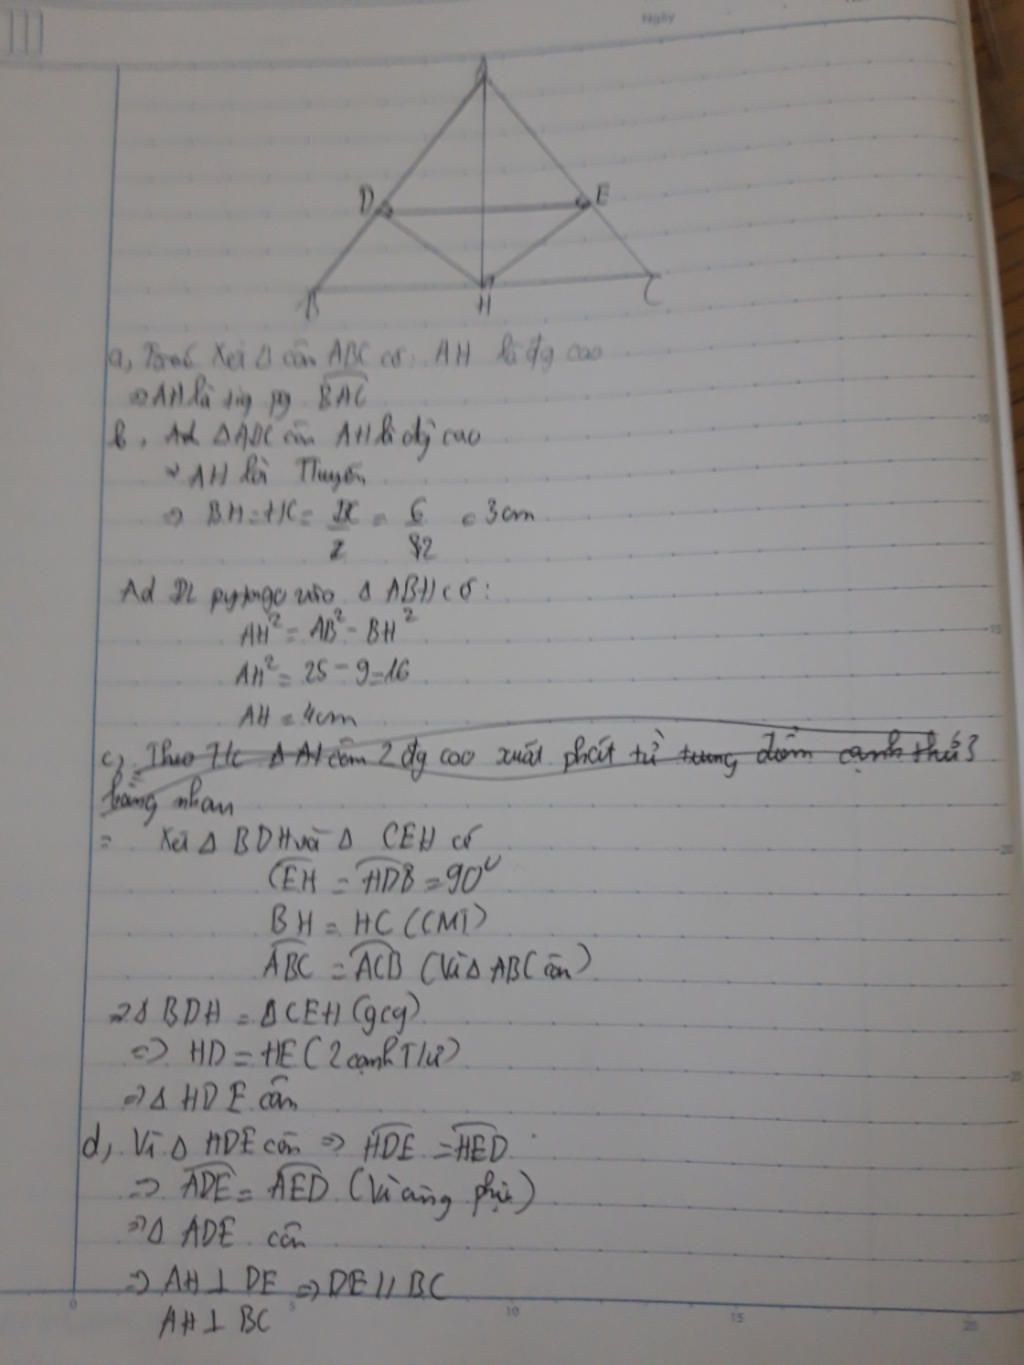 Ngày
A
D
E
B
H
C
a, Xét Δ cân ABC có: AH là đg cao
=> AH là pg BAC
b, Ad ΔABC cân AH là đg cao
=> AH là Tuyến
=> BH = HC = BC/2 = 6/2 = 3cm
Ad ĐL pytago vào Δ ABH có:
AH² = AB² - BH²
AH² = 25 - 9 = 16
AH = 4cm
c, Theo T/c Δ cân 2 đg cao xuất phát từ trung điểm cạnh thứ 3
bằng nhau
= Xét Δ BDH và Δ CEH có
CEH = HDB = 90°
BH = HC (CMT)
ABC = ACB (Vì Δ ABC cân)
=> Δ BDH = Δ CEH (gcg)
=> HD = HE (2 cạnh T/ứ)
=> Δ HDE cân
d, Vì Δ HDE cân => HDE = HED
=> ADE = AED (Vì cùng phụ)
=> Δ ADE cân
=> AH ⊥ DE => DE // BC
AH ⊥ BC
0 5 10 15 20